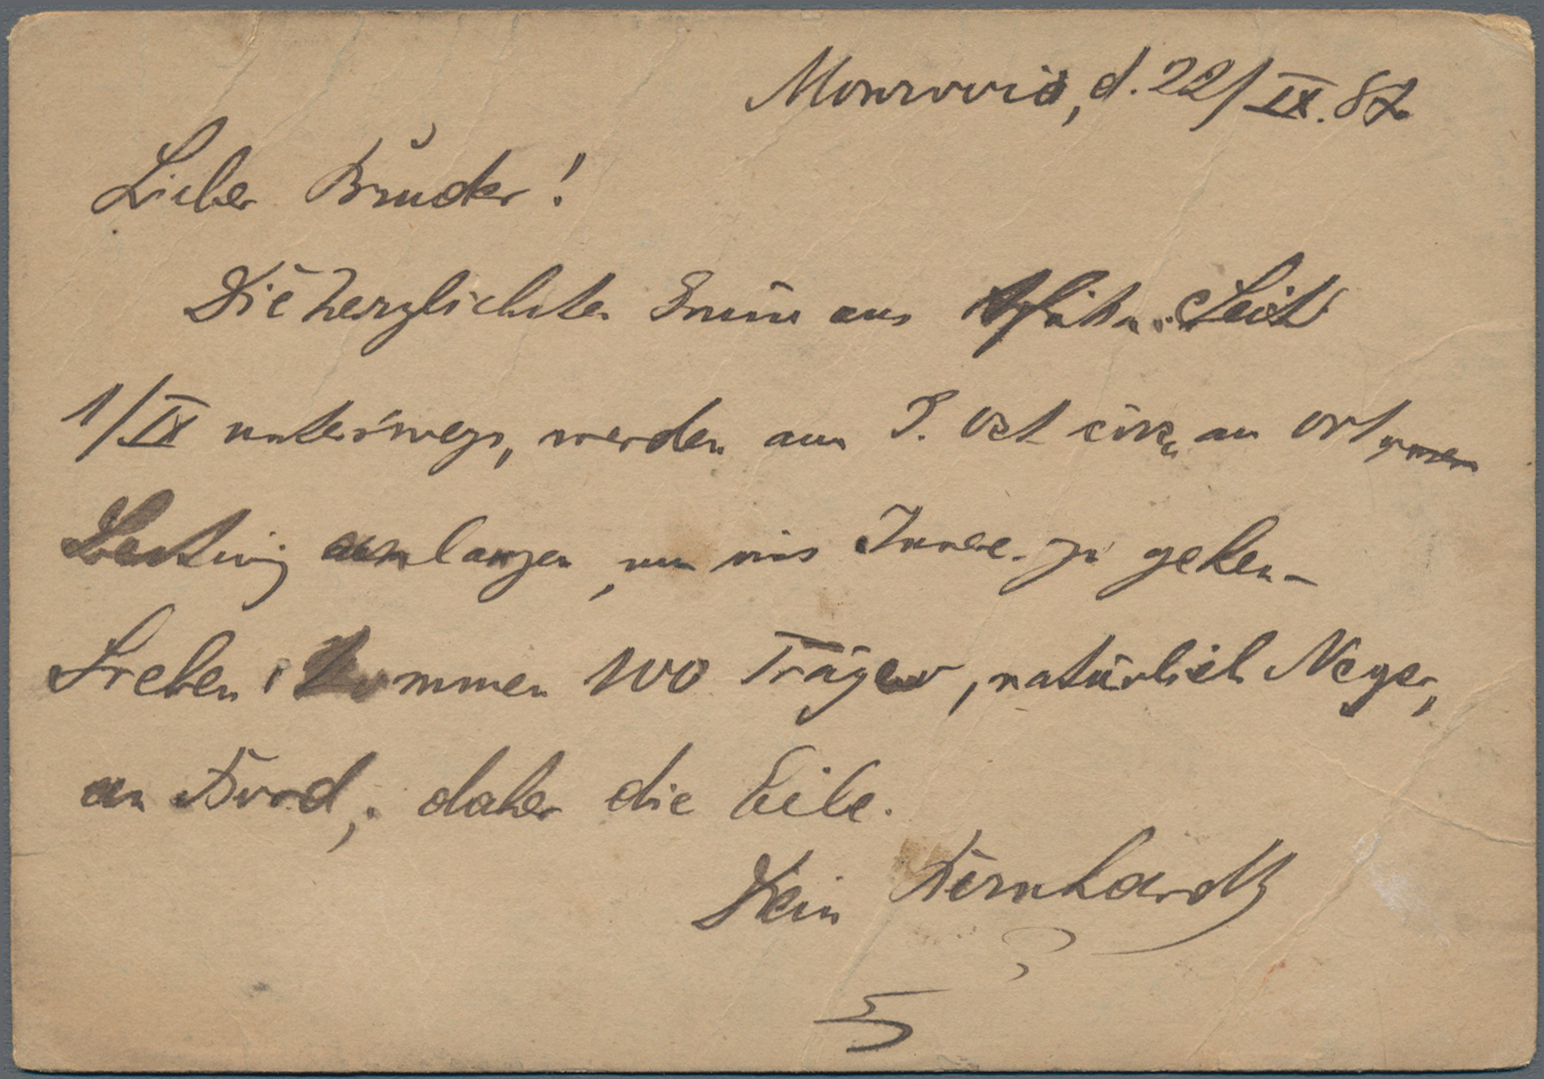 Monrovia, d. 22/IX. 87
Lieber Bruder!
Die herzlichsten Grüsse aus Afrika. Seit
1/IX unterwegs, werden am Oct circa an Ort
anlangen, um ins Innere zu gehen –
Soeben kommen 100 Träger, natürlich Neger,
an Bord, daher die Eile.
Dein Bernhard